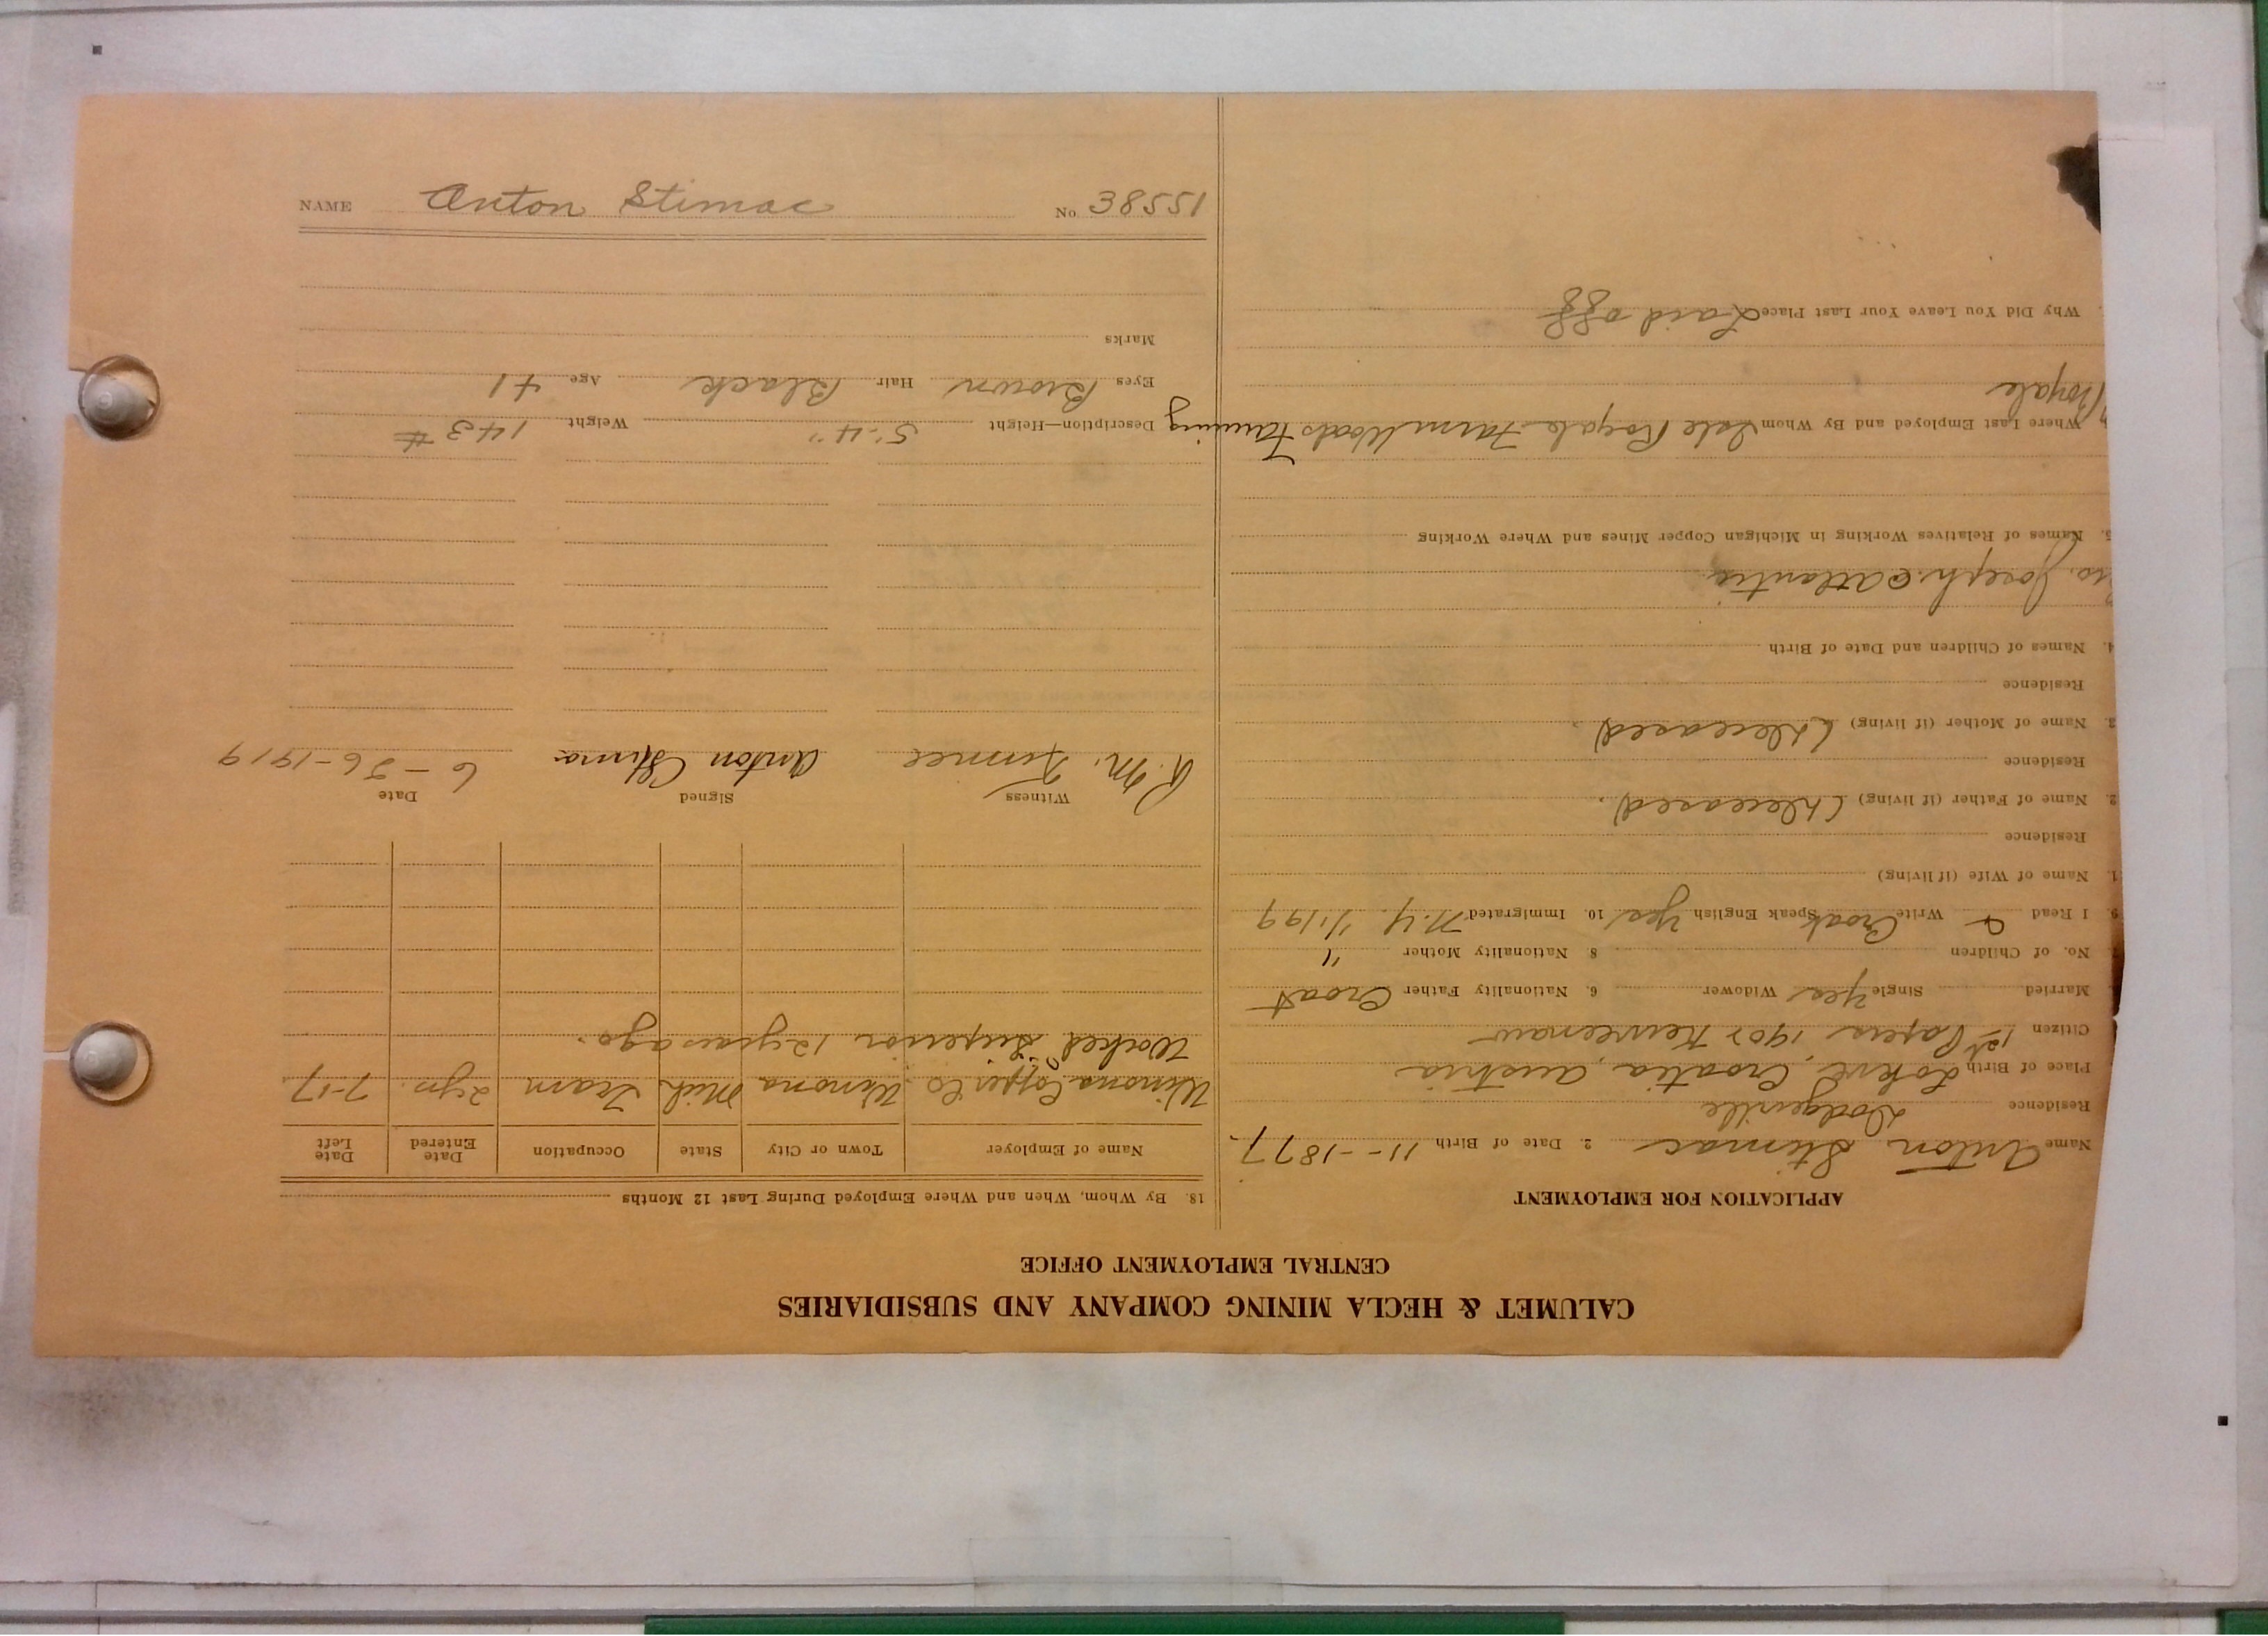 CALUMET & HECLA MINING COMPANY AND SUBSIDIARIES
CENTRAL EMPLOYMENT OFFICE
APPLICATION FOR EMPLOYMENT
Name Anton Stimac 2. Date of Birth 11--1877
Residence Dodgeville
Place of Birth Lokve, Croatia, Austria
Citizen 1st Papers 1902 Keweenaw
Married Single Yes Widower 6. Nationality Father Croat
No. of Children 8 Nationality Mother "
9. I Read & Write Croat Speak English Yes 10. Immigrated N.Y.
1. Name of Wife (if living)
Residence
2. Name of Father (if living) (Deceased).
Residence
3. Name of Mother (if living) (Deceased).
Residence
4. Names of Children and Date of Birth
Joseph. Atlantic
5. Names of Relatives Working in Michigan Copper Mines and Where Working
Where Last Employed and By Whom Isle Royale Farm Woods Farming
Royale
Why Did You Leave Your Last Place Laid off
18. By Whom, When and Where Employed During Last 12 Months
Name of Employer Town or City State Occupation Date Entered Date Left
Winona Copper Co. Winona Mich Tram 2 yrs. 7-17
Worked Superior 12 years ago.
Witness Signed Date
R. M. Anton Stimac 6-26-1919
Description—Height 5'.4" Weight 143 #
Eyes Brown Hair Black Age 41
Marks
NAME Anton Stimac No. 38551